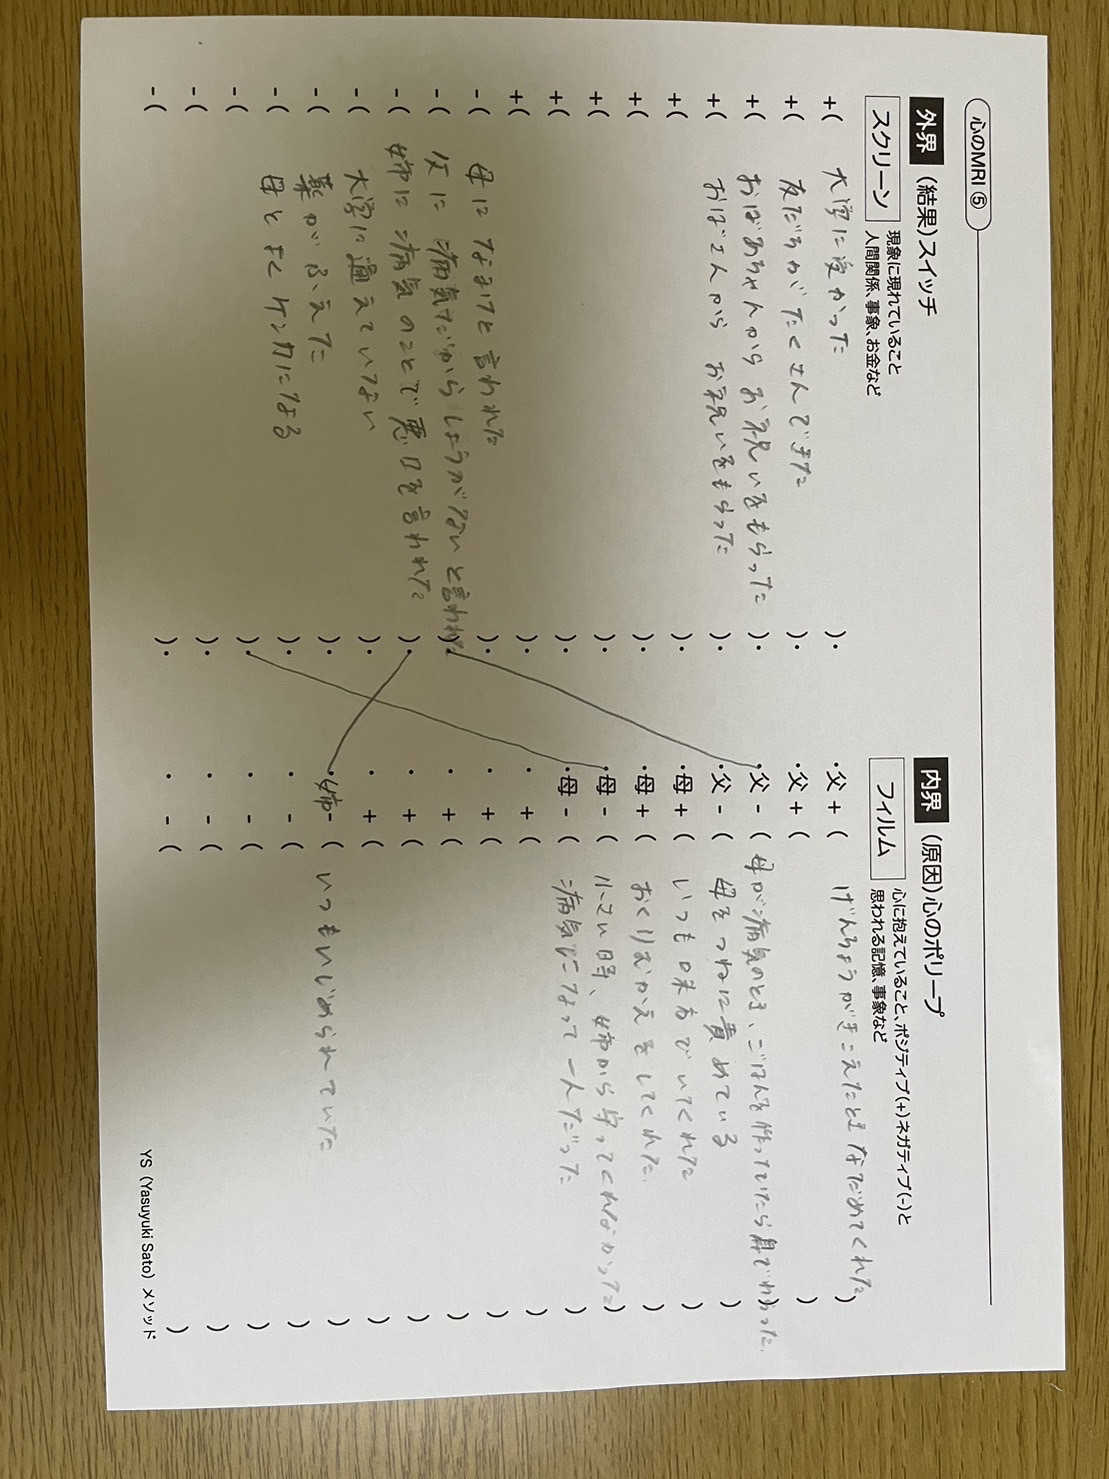 心のMRI ⑤
外界 (結果)スイッチ
スクリーン 現象に現れていること
人間関係、事象、お金など
+( 大学に受かった )・
+( 友だちがたくさんできた )・
+( おばあちゃんからお祝いをもらった )・
+( おばさんからお祝いをもらった )・
+( )・
+( )・
+( )・
+( )・
+( )・
-( 母になまけと言われた )・
-( 父に病気だからしょうがないと言われた )・
-( 姉に病気のことで悪口を言われた )・
-( 大学に通えていない )・
-( 薬がふえた )・
-( 母とよくケンカになる )・
-( )・
-( )・
-( )・
内界 (原因)心のポリープ
フィルム 心に抱えていること、ポジティブ(+)ネガティブ(-)と
思われる記憶、事象など
・父 + ( げんちょうがきこえたときなだめてくれた )
・父 + ( )
・父 - ( 母が病気のとき、ごはんを作っていたら鼻でわらった )
・父 - ( 母をつねに責めている )
・母 + ( いつも味方でいてくれた )
・母 + ( おくりむかえをしてくれた )
・母 - ( 小さい時、姉から守ってくれなかった )
・母 - ( 病気になって一人だった )
・ + ( )
・ + ( )
・ + ( )
・ + ( )
・ + ( )
・姉- ( いつもいじめられていた )
・ - ( )
・ - ( )
・ - ( )
・ - ( )
YS (Yasuyuki Sato) メソッド